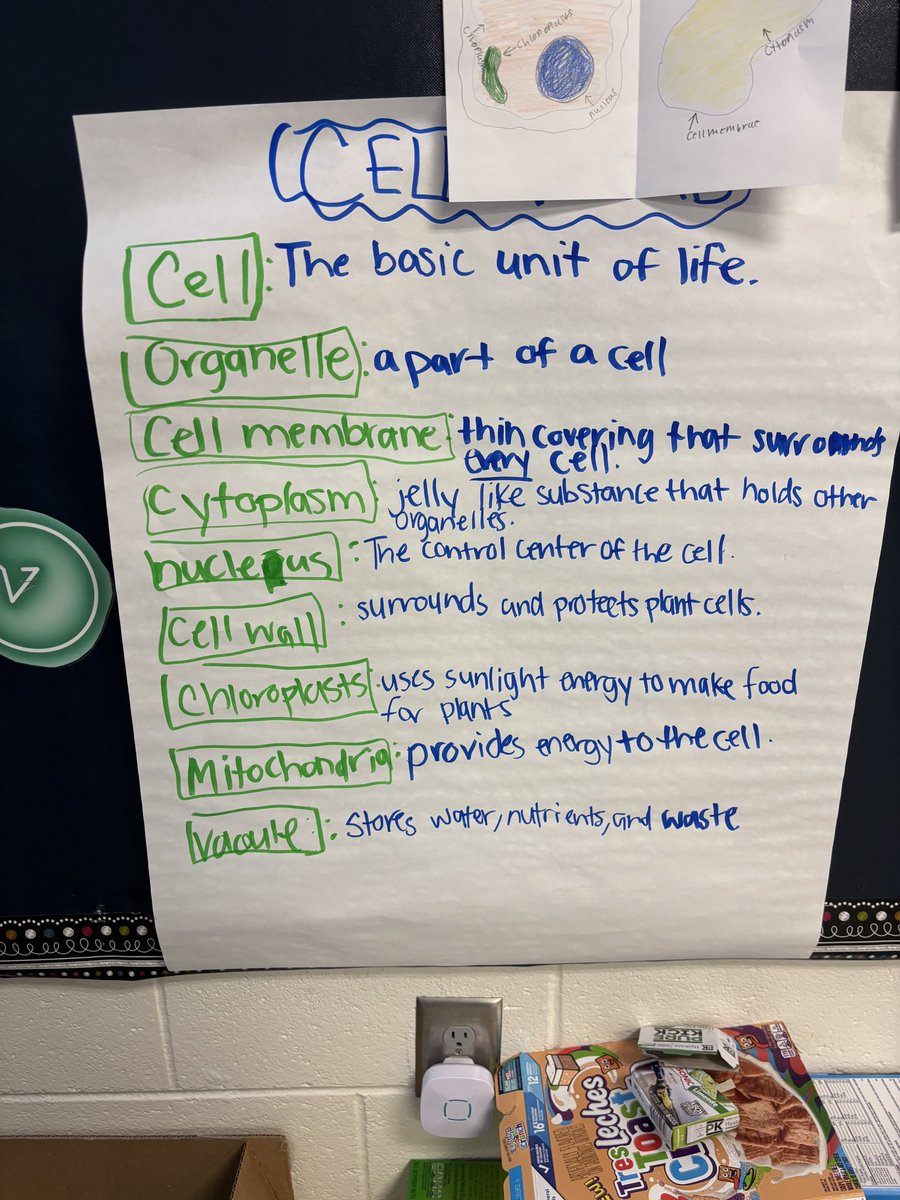 chloroplasts
nucleus
cytoplasm
cell membrae
CELL
Cell: The basic unit of life.
Organelle: a part of a cell
Cell membrane: thin covering that surrounds
every cell.
Cytoplasm: jelly like substance that holds other
organelles.
nucleus: The control center of the cell.
Cell wall: surrounds and protects plant cells.
Chloroplasts: uses sunlight energy to make food
for plants
Mitochondria: provides energy to the cell.
Vacuole: Stores water, nutrients, and waste
V
PURE
KICK
12
16
Tres
Leches
Toast
PK